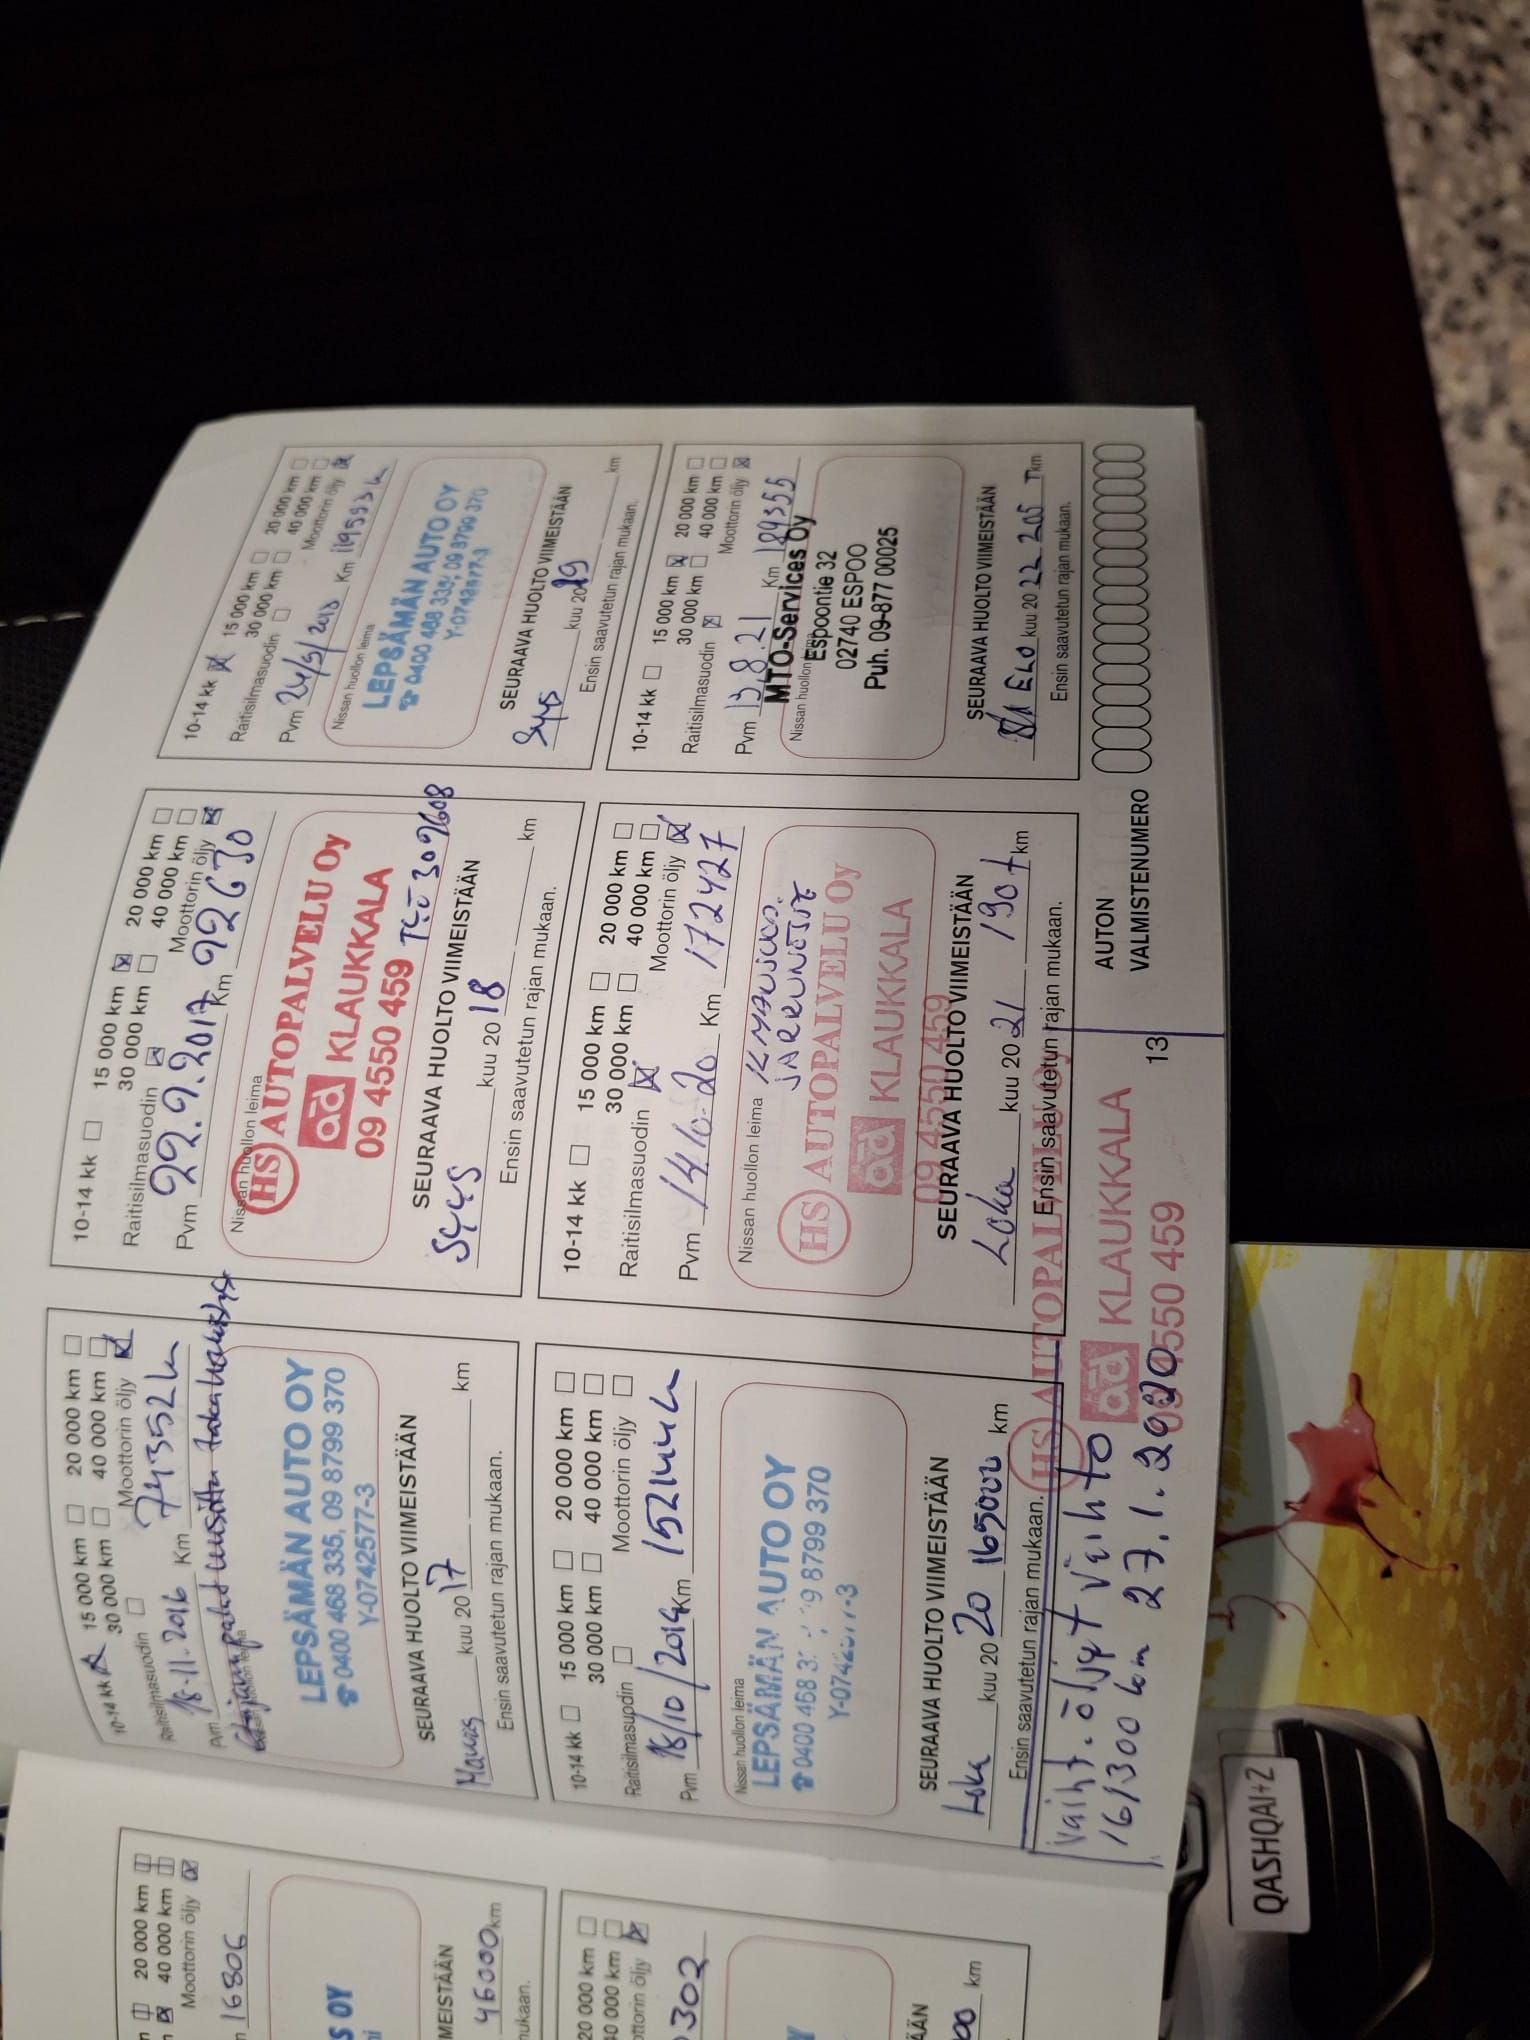 10-14 kk 15 000 km 20 000 km
30 000 km 40 000 km
Raitisilmasuodin Moottorin öljy
Pvm 18.11.2016 Km 74352 km
LEPSÄMÄN AUTO OY
☎ 0400 468 335, 09 8799 370
Y-0742577-3
SEURAAVA HUOLTO VIIMEISTÄÄN
kuu 20 17 km
Ensin saavutetun rajan mukaan.
10-14 kk 15 000 km 20 000 km
30 000 km 40 000 km
Raitisilmasuodin Moottorin öljy
Pvm 22.9.2017 Km 92630
Nissan huollon leima
HS AUTOPALVELU Oy
ad KLAUKKALA
09 4550 459
SEURAAVA HUOLTO VIIMEISTÄÄN
SYYS kuu 20 18 km
Ensin saavutetun rajan mukaan.
10-14 kk 15 000 km 20 000 km
30 000 km 40 000 km
Raitisilmasuodin Moottorin öljy
Pvm Km
Nissan huollon leima
LEPSÄMÄN AUTO OY
☎ 0400 468 335, 09 8799 370
Y-0742577-3
SEURAAVA HUOLTO VIIMEISTÄÄN
Syys kuu 2019 km
Ensin saavutetun rajan mukaan.
10-14 kk 15 000 km 20 000 km
30 000 km 40 000 km
Raitisilmasuodin Moottorin öljy
Pvm Km
Nissan huollon leima
LEPSÄMÄN AUTO OY
SEURAAVA HUOLTO VIIMEISTÄÄN
Loka kuu 20 20 165000 km
Ensin saavutetun rajan mukaan.
10-14 kk 15 000 km 20 000 km
30 000 km 40 000 km
Raitisilmasuodin Moottorin öljy
Pvm 14.10.20 Km 172427
Nissan huollon leima
JARRUNESTE
HS AUTOPALVELU Oy
ad KLAUKKALA
09 4550 459
SEURAAVA HUOLTO VIIMEISTÄÄN
Loka kuu 20 21 190 t km
Ensin saavutetun rajan mukaan.
10-14 kk 15 000 km 20 000 km
30 000 km 40 000 km
Raitisilmasuodin Moottorin öljy
Pvm 13.8.21 Km 189355
Nissan huollon leima
MTO-Services Oy
Espoontie 32
02740 ESPOO
Puh. 09-877 00025
SEURAAVA HUOLTO VIIMEISTÄÄN
ELO kuu 20 22 205 T km
Ensin saavutetun rajan mukaan.
HS AUTOPALVELU Oy
ad KLAUKKALA
09 4550 459
Vaiht. öljyt vaihto
161300 km 27.1.2020
13
AUTON
VALMISTENUMERO
20 000 km
40 000 km
Moottorin öljy
16806
46000 km
20 000 km
Moottorin öljy
302
km
QASHQAI+2